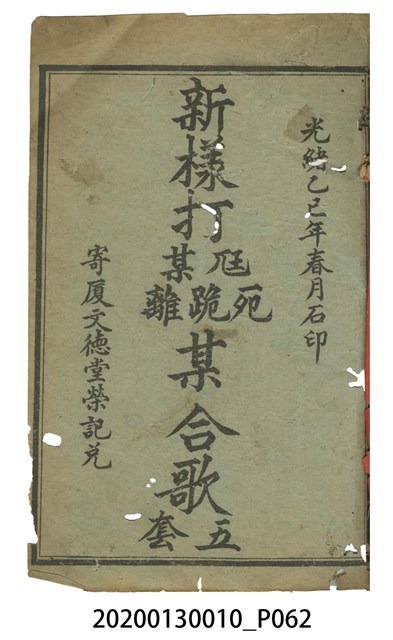 光緒乙巳年春月石印
新樣打
尫某
跪離
某合歌
五套
寄厦文德堂榮記兌
20200130010_P062